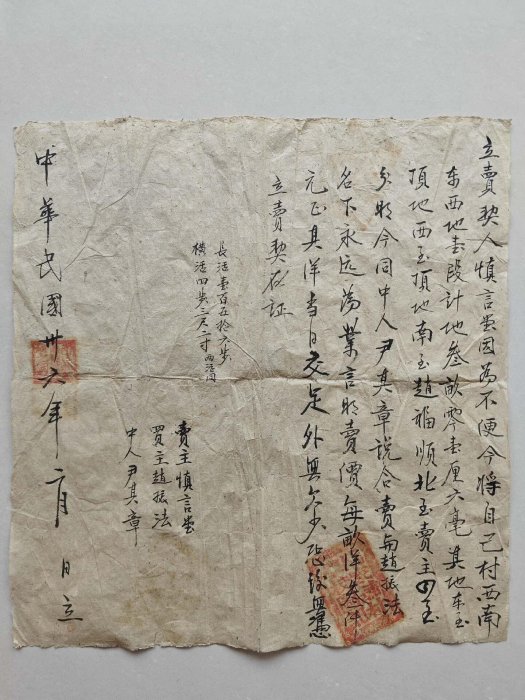 立賣契人慎言堂因為不便今將自己村西南
东西地壹段計地叁畝零壹厘六毫其地东至
頂地西至頂地南至趙福順北至賣主四至
分明今同中人尹其章說合賣与趙振法
名下永远為業言明賣價每畝洋叁仟
元正其洋當日交足外無欠少恐後無憑
立賣契存証
長活壹百五拾六步
橫活四步三尺二寸西活同
賣主慎言堂
買主趙振法
中人尹其章
中華民國卅六年二月 日立